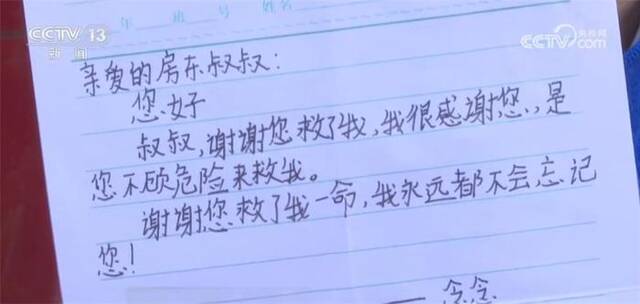 CCTV 13
新闻
央视网
CCTV.com
年 班 号 姓名
亲爱的房东叔叔：
您好
叔叔，谢谢您救了我，我很感谢您，是
您不顾危险来救我。
谢谢您救了我一命，我永远都不会忘记
您！
——念念